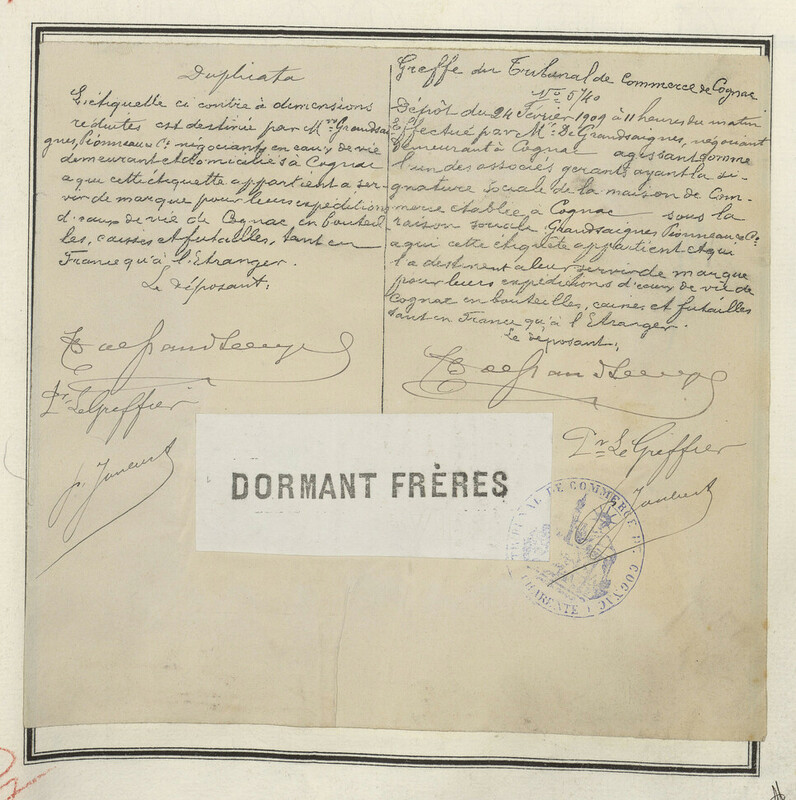 Duplicata
L'étiquette ci contre à dimensions
réduites est destinée par Mrs Grandsai-
gnes, Pionneau & Cie négociants en eaux de vie
demeurant et domiciliés à Cognac
a que cette étiquette appartient a ser-
vir de marque pour leurs expéditions
d'eaux de vie de Cognac en bouteil-
les, caisses et futailles, tant en
France qu'à l'Etranger.
Le déposant:
Pr. Le Greffier
Greffe du Tribunal de Commerce de Cognac
No 5740
Dépôt du 24 Février 1909 à 11 heures du matin
Effectué par Mr. De Grandsaignes, négociant
demeurant à Cognac agissant comme
l'un des associés gerants ayant la si-
gnature sociale de la maison de Com-
merce établie à Cognac sous la
raison sociale Grandsaignes Pionneau & Cie
a qui cette étiquete appartient et qui
l'a destinent a leur servir de marque
pour leurs expéditions d'eaux de vie de
Cognac en bouteilles, caisses et futailles
tant en France qu'à l'Etranger.
Le déposant:
Pr Le Greffier
DORMANT FRÈRES
TRIBUNAL DE COMMERCE DE COGNAC
CHARENTE